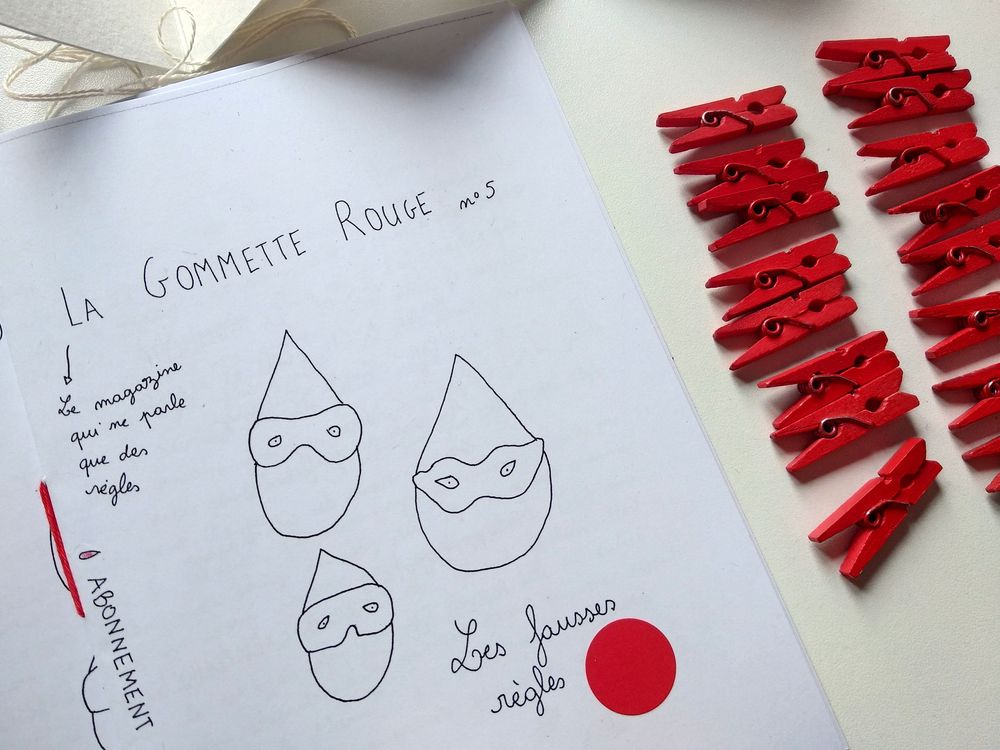 LA GOMMETTE ROUGE n°5
Le magazine
qui ne parle
que des
règles
ABONNEMENT
Les fausses
règles